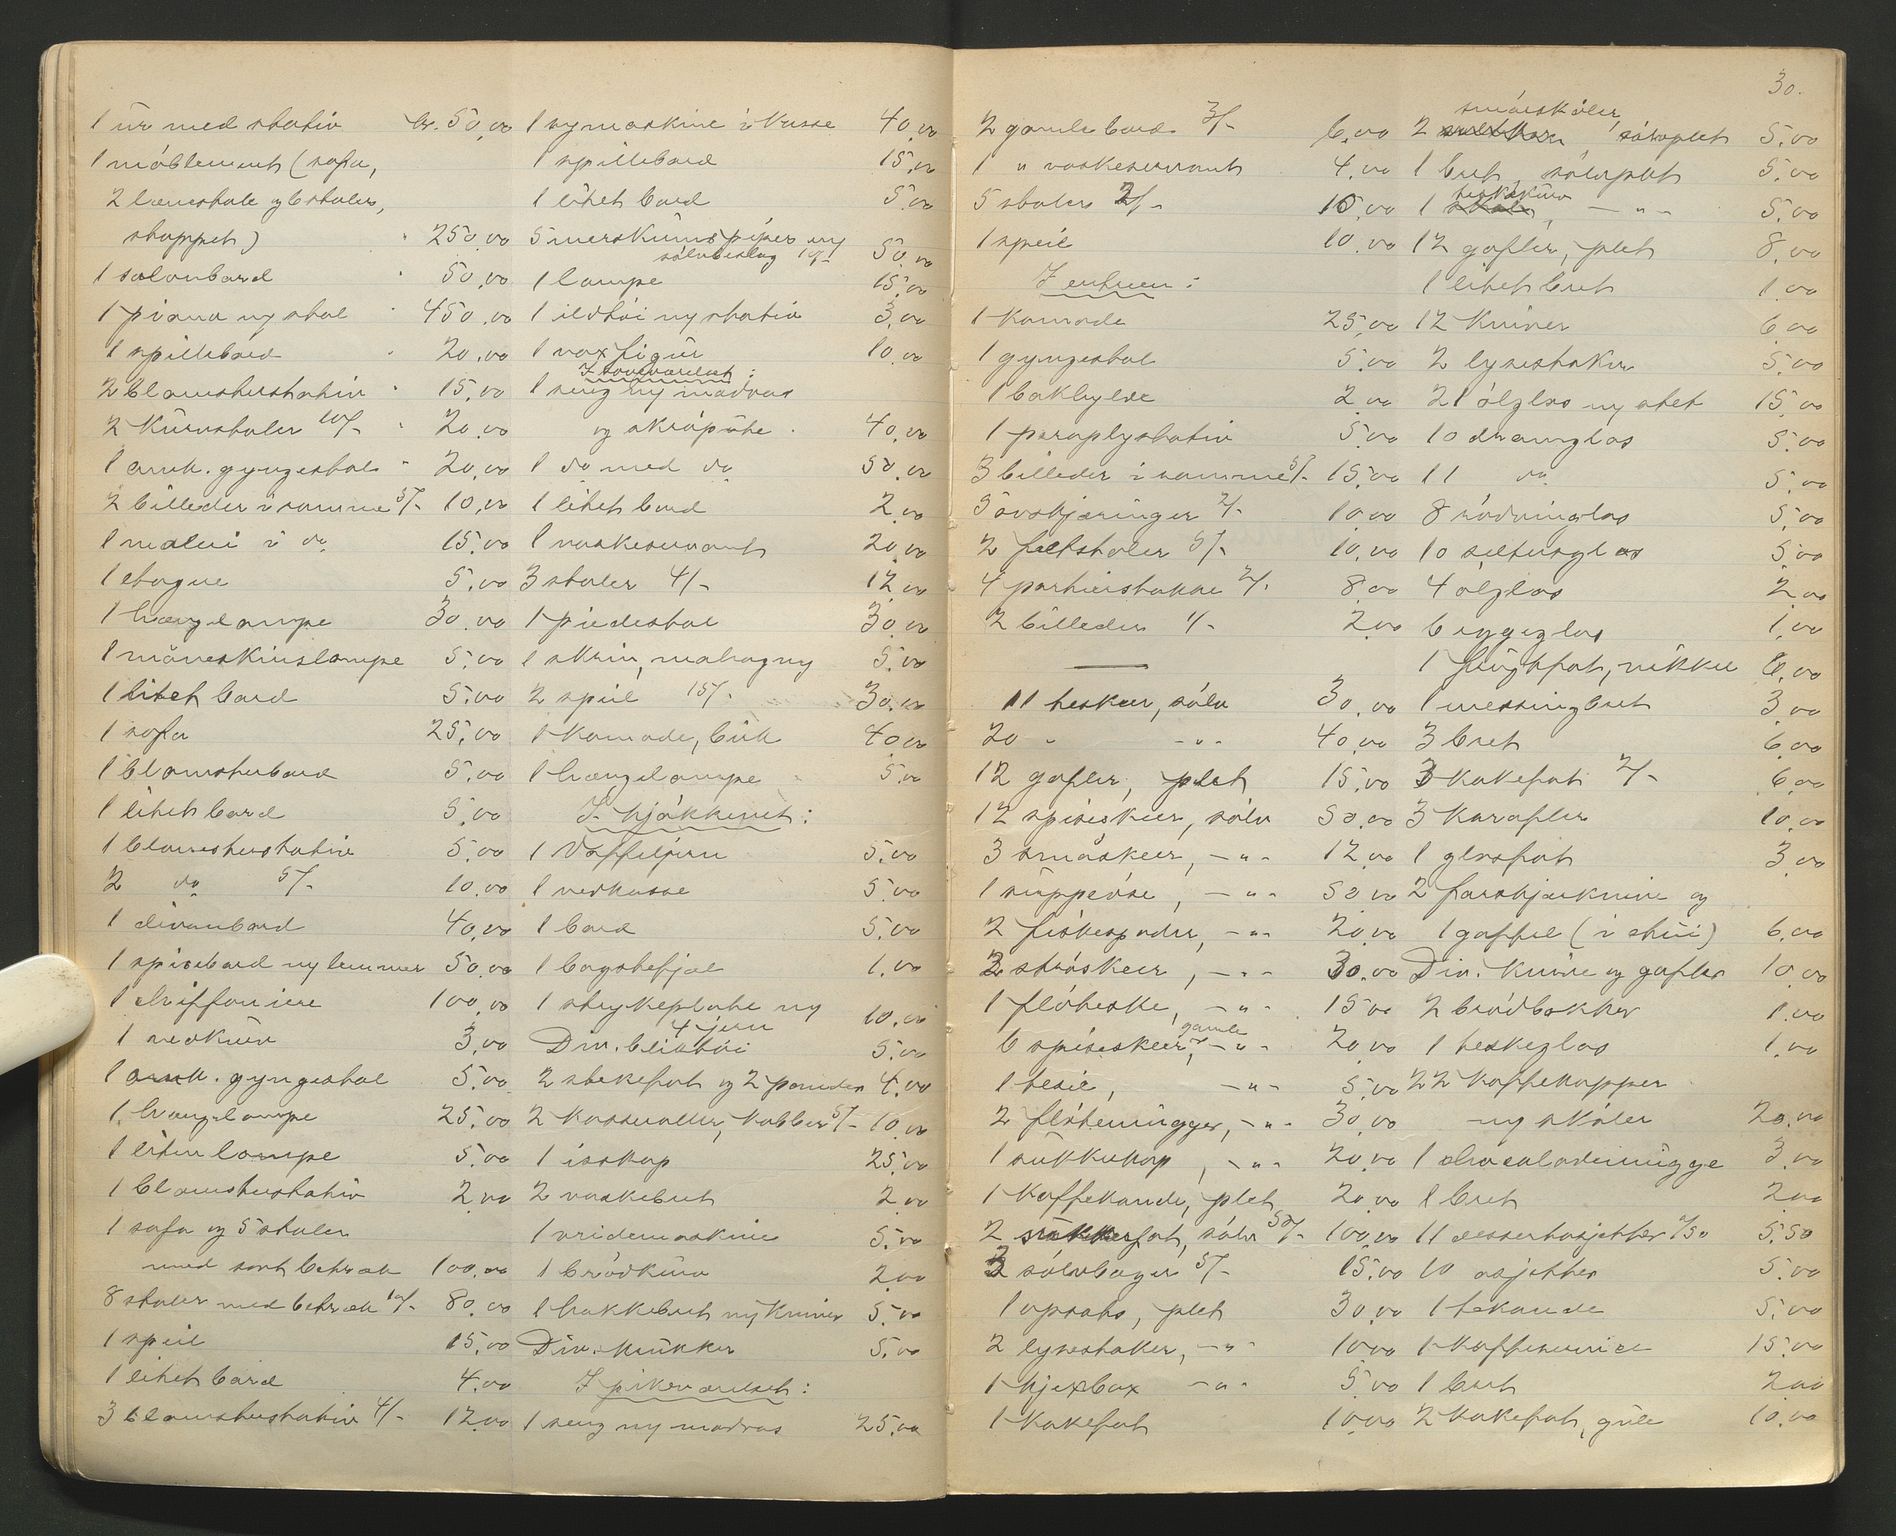 1 ur med stativ kr. 50,00
1 möblement (sofa,
2 lænestole og 6 stoler,
stoppet) " 250,00
1 salonbord " 50,00
1 piano og stol " 450,00
1 spillebord " 20,00
2 blomsterstativ " 15,00
2 kurvstoler 10/- " 20,00
1 amk. gyngestol " 20,00
2 billeder i ramme 5/- 10,00
1 maleri i do 15,00
1 etagere 5,00
1 hængelampe 30,00
1 måneskinslampe 5,00
1 litet bord 5,00
1 sofa 25,00
1 blomsterbord 5,00
1 litet bord 5,00
1 blomsterstativ 5,00
2 do 5/- 10,00
1 divanbord 40,00
1 spisebord og lemmer 50,00
1 chiffoniere 100,00
1 vedkurv 3,00
1 amk. gyngestol 5,00
1 hængelampe 25,00
1 liten lampe 5,00
1 blomsterstativ 2,00
1 sofa og 5 stoler
med sort betræk 100,00
8 stoler med betræk 10/- 80,00
1 speil 15,00
1 litet bord 4,00
3 blomsterstativ 4/- 12,00
1 symaskine i kasse 40,00
1 spillebord 15,00
1 litet bord 5,00
5 merskumspiper og
sølvbeslag 10/- 50,00
1 lampe 15,00
1 ildtøi og stativ 3,00
1 voxfigur 10,00
I soveværelset:
1 seng og madras
og skråpute 40,00
1 do med do 50,00
1 litet bord 2,00
1 vaskeservant 20,00
3 stoler 4/- 12,00
1 piedestal 30,00
1 skrin, mahogny 5,00
2 speil 15/- 30,00
1 komode, birk 40,00
1 hængelampe 5,00
I kjøkkenet:
1 Vaffeljern 5,00
1 vedkasse 5,00
1 bord 5,00
1 bagstefjæl 1,00
1 strykeplate og
4 jern 10,00
Div. bliktøi 5,00
2 stekefat og 2 pander 4,00
2 kasseroller, kobber 5/- 10,00
1 isskap 25,00
2 vaskebret 2,00
1 vridemaskine 5,00
1 brødkurv 2,00
1 hakkebret og kniver 5,00
Div. krukker 5,00
I pikeværelset:
1 seng og madras 25,00
30.
2 gamle bord 3/- 6,00
1 " vaskeservant 4,00
5 stoler 2/- 10,00
1 speil 10,00
I entreen:
1 komode 25,00
1 gyngestol 5,00
1 bokhylde 2,00
1 paraplystativ 5,00
3 billeder i ramme 5/- 15,00
5 avskjæringer 2/- 10,00
2 feltstoler 5/- 10,00
4 portierstokke 2/- 8,00
2 billeder 1/- 2,00
11 teskeer, sølv 30,00
20 " - " - 40,00
12 gafler, plet 15,00
12 spiseskeer, sølv 50,00
3 småskeer, - " - 12,00
1 suppeøse, - " - 50,00
2 fiskespader, - " - 20,00
2 strøskeer, - " - 30,00
1 fløteske, - " - 15,00
6 spiseskeer, gamle - " - 20,00
1 tesil, - " - 5,00
2 fløtemugger, - " - 30,00
1 sukkerkop, - " - 20,00
1 kaffekande, plet 20,00
2 sukkerfat, sølv 50/- 100,00
3 sølvbæger 5/- 15,00
1 opsats, plet 30,00
2 lysestaker, - " - 10,00
1 kjexbox - " - 5,00
1 kakefat 10,00
småskåler,
2 saltkar, sølvplet 5,00
1 bret, sølvplet 5,00
teskekurv
1 skål, - " - 5,00
12 gafler, plet 8,00
1 litet bret 1,00
12 kniver 6,00
2 lysestaker 5,00
21 ølglas og stet 15,00
10 dramglas 5,00
11 do 5,00
8 rødvinglas 5,00
10 seltersglas 5,00
4 ølglas 2,00
6 eggeglas 1,00
1 frugtfat, nikkel 6,00
1 messingbret 3,00
3 bret 6,00
3 kakefat 2/- 6,00
3 karafler 10,00
1 glasfat 3,00
2 forskjærkniver og
1 gaffel (i etui) 6,00
Div. kniver og gafler 10,00
2 brødbakker 1,00
1 teskeglas 1,00
22 kaffekopper
og skåler 20,00
1 chocolademugge 3,00
1 bret 2,00
11 dessertasjetter a/50 5,50
10 asjetter 5,00
1 tekande 5,00
1 kaffeservice 15,00
1 bret 2,00
2 kakefat, gule 10,00